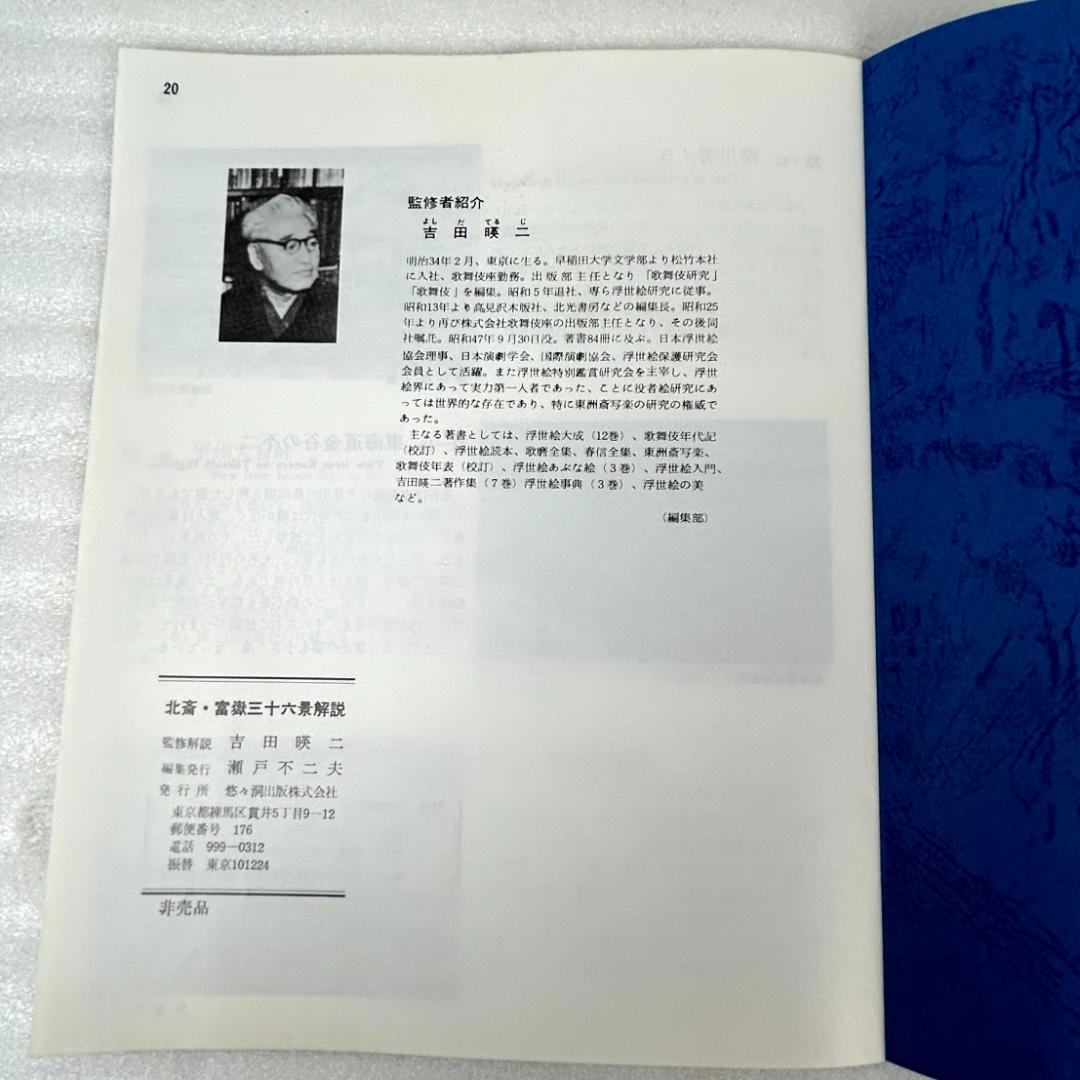 20
監修者紹介
よし だ てる じ
吉田暎二
明治34年2月、東京に生る。早稲田大学文学部より松竹本社
に入社、歌舞伎座勤務。出版部主任となり「歌舞伎研究」
「歌舞伎」を編集。昭和5年退社、専ら浮世絵研究に従事。
昭和13年より高見沢木版社、北光書房などの編集長。昭和25
年より再び株式会社歌舞伎座の出版部主任となり、その後同
社嘱託。昭和47年9月30日没。著書84冊に及ぶ。日本浮世絵
協会理事、日本演劇学会、国際演劇協会、浮世絵保護研究会
会員として活躍。また浮世絵特別鑑賞研究会を主宰し、浮世
絵界にあって実力第一人者であった、ことに役者絵研究にあ
っては世界的な存在であり、特に東洲斎写楽の研究の権威で
あった。
主なる著書としては、浮世絵大成(12巻)、歌舞伎年代記
(校訂)、浮世絵読本、歌磨全集、春信全集、東洲斎写楽、
歌舞伎年表(校訂)、浮世絵あぶな絵(3巻)、浮世絵入門、
吉田暎二著作集(7巻)浮世絵事典(3巻)、浮世絵の美
など。
(編集部)
北斎・富嶽三十六景解説
監修解説 吉田暎二
編集発行 瀬戸不二夫
発行所 悠々洞出版株式会社
東京都練馬区貫井5丁目9—12
郵便番号 176
電話 999—0312
振替 東京101224
非売品